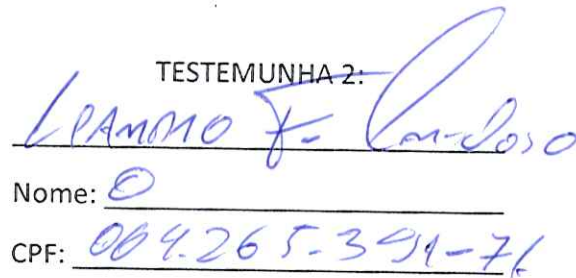 TESTEMUNHA 2:
Leandro F. Cardoso
Nome: O
CPF: 004.265.391-71